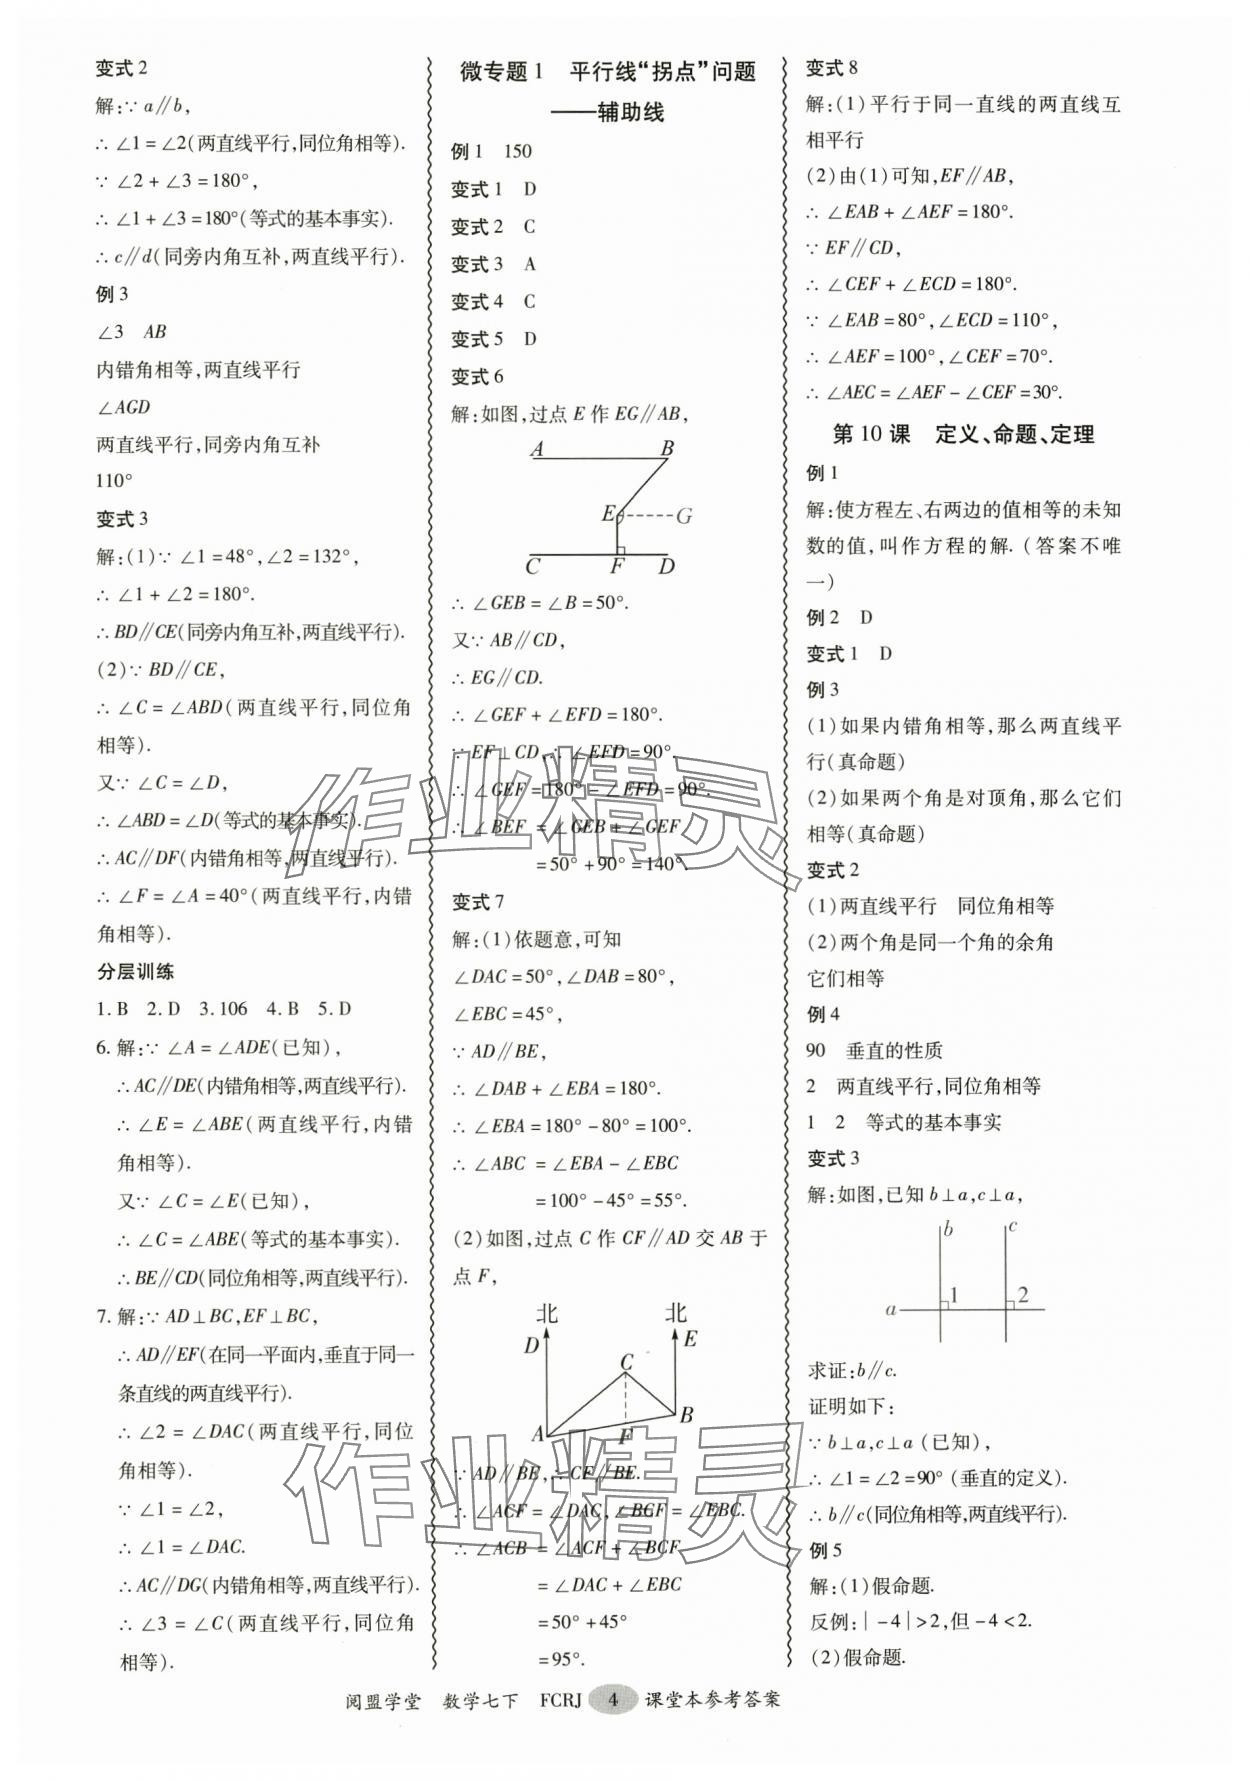 变式2
解:∵a∥b,
∴∠1=∠2(两直线平行,同位角相等).
∵∠2+∠3=180°,
∴∠1+∠3=180°(等式的基本事实).
∴c∥d(同旁内角互补,两直线平行).
例3
∠3 AB
内错角相等,两直线平行
∠AGD
两直线平行,同旁内角互补
110°
变式3
解:(1)∵∠1=48°,∠2=132°,
∴∠1+∠2=180°.
∴BD∥CE(同旁内角互补,两直线平行).
(2)∵BD∥CE,
∴∠C=∠ABD(两直线平行,同位角
相等).
又∵∠C=∠D,
∴∠ABD=∠D(等式的基本事实).
∴AC∥DF(内错角相等,两直线平行).
∴∠F=∠A=40°(两直线平行,内错
角相等).
分层训练
1.B 2.D 3.106 4.B 5.D
6.解:∵∠A=∠ADE(已知),
∴AC∥DE(内错角相等,两直线平行).
∴∠E=∠ABE(两直线平行,内错
角相等).
又∵∠C=∠E(已知),
∴∠C=∠ABE(等式的基本事实).
∴BE∥CD(同位角相等,两直线平行).
7.解:∵AD⊥BC,EF⊥BC,
∴AD∥EF(在同一平面内,垂直于同一
条直线的两直线平行).
∴∠2=∠DAC(两直线平行,同位
角相等).
∵∠1=∠2,
∴∠1=∠DAC.
∴AC∥DG(内错角相等,两直线平行).
∴∠3=∠C(两直线平行,同位角
相等).
微专题1 平行线“拐点”问题
——辅助线
例1 150
变式1 D
变式2 C
变式3 A
变式4 C
变式5 D
变式6
解:如图,过点E作EG∥AB,
A B
E G
C F D
∴∠GEB=∠B=50°.
又∵AB∥CD,
∴EG∥CD.
∴∠GEF+∠EFD=180°.
∵EF⊥CD,∴∠EFD=90°.
∴∠GEF=180°-∠EFD=90°.
∴∠BEF=∠GEB+∠GEF
=50°+90°=140°.
变式7
解:(1)依题意,可知
∠DAC=50°,∠DAB=80°,
∠EBC=45°,
∵AD∥BE,
∴∠DAB+∠EBA=180°.
∴∠EBA=180°-80°=100°.
∴∠ABC=∠EBA-∠EBC
=100°-45°=55°.
(2)如图,过点C作CF∥AD交AB于
点F,
北 北
D E
C
B
A F
∵AD∥BE,∴CF∥BE.
∴∠ACF=∠DAC,∠BCF=∠EBC.
∴∠ACB=∠ACF+∠BCF
=∠DAC+∠EBC
=50°+45°
=95°.
变式8
解:(1)平行于同一直线的两直线互
相平行
(2)由(1)可知,EF∥AB,
∴∠EAB+∠AEF=180°.
∵EF∥CD,
∴∠CEF+∠ECD=180°.
∵∠EAB=80°,∠ECD=110°,
∴∠AEF=100°,∠CEF=70°.
∴∠AEC=∠AEF-∠CEF=30°.
第10课 定义、命题、定理
例1
解:使方程左、右两边的值相等的未知
数的值,叫作方程的解.(答案不唯
一)
例2 D
变式1 D
例3
(1)如果内错角相等,那么两直线平
行(真命题)
(2)如果两个角是对顶角,那么它们
相等(真命题)
变式2
(1)两直线平行 同位角相等
(2)两个角是同一个角的余角
它们相等
例4
90 垂直的性质
2 两直线平行,同位角相等
1 2 等式的基本事实
变式3
解:如图,已知b⊥a,c⊥a,
b c
1 2
a
求证:b∥c.
证明如下:
∵b⊥a,c⊥a(已知),
∴∠1=∠2=90°(垂直的定义).
∴b∥c(同位角相等,两直线平行).
例5
解:(1)假命题.
反例:|-4|>2,但-4<2.
(2)假命题.
阅盟学堂 数学七下 FCRJ 4 课堂本参考答案
作业精灵
作业精灵